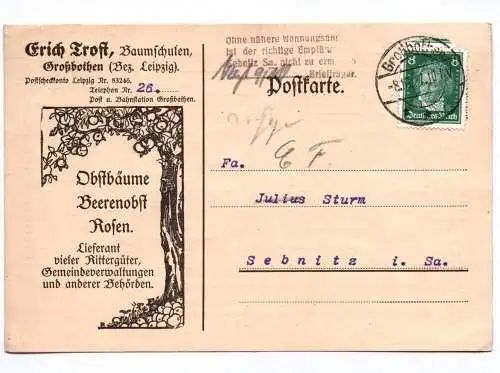 Erich Trost, Baumschulen,
Großbothen (Bez. Leipzig).
Postscheckkonto Leipzig Nr. 83246.
Telephon Nr. 26.
Post u. Bahnstation Großbothen.
Obstbäume
Beerenobst
Rosen.
Lieferant
vieler Rittergüter,
Gemeindeverwaltungen
und anderer Behörden.
Ohne nähere Wohnungsan
ist der richtige Empfän
Sebnitz Sa. nicht zu erm
Briefträger.
Postkarte.
Großbothen
8
8
Deutsches Reich
Fa.
Julius Sturm
Sebnitz i. Sa.